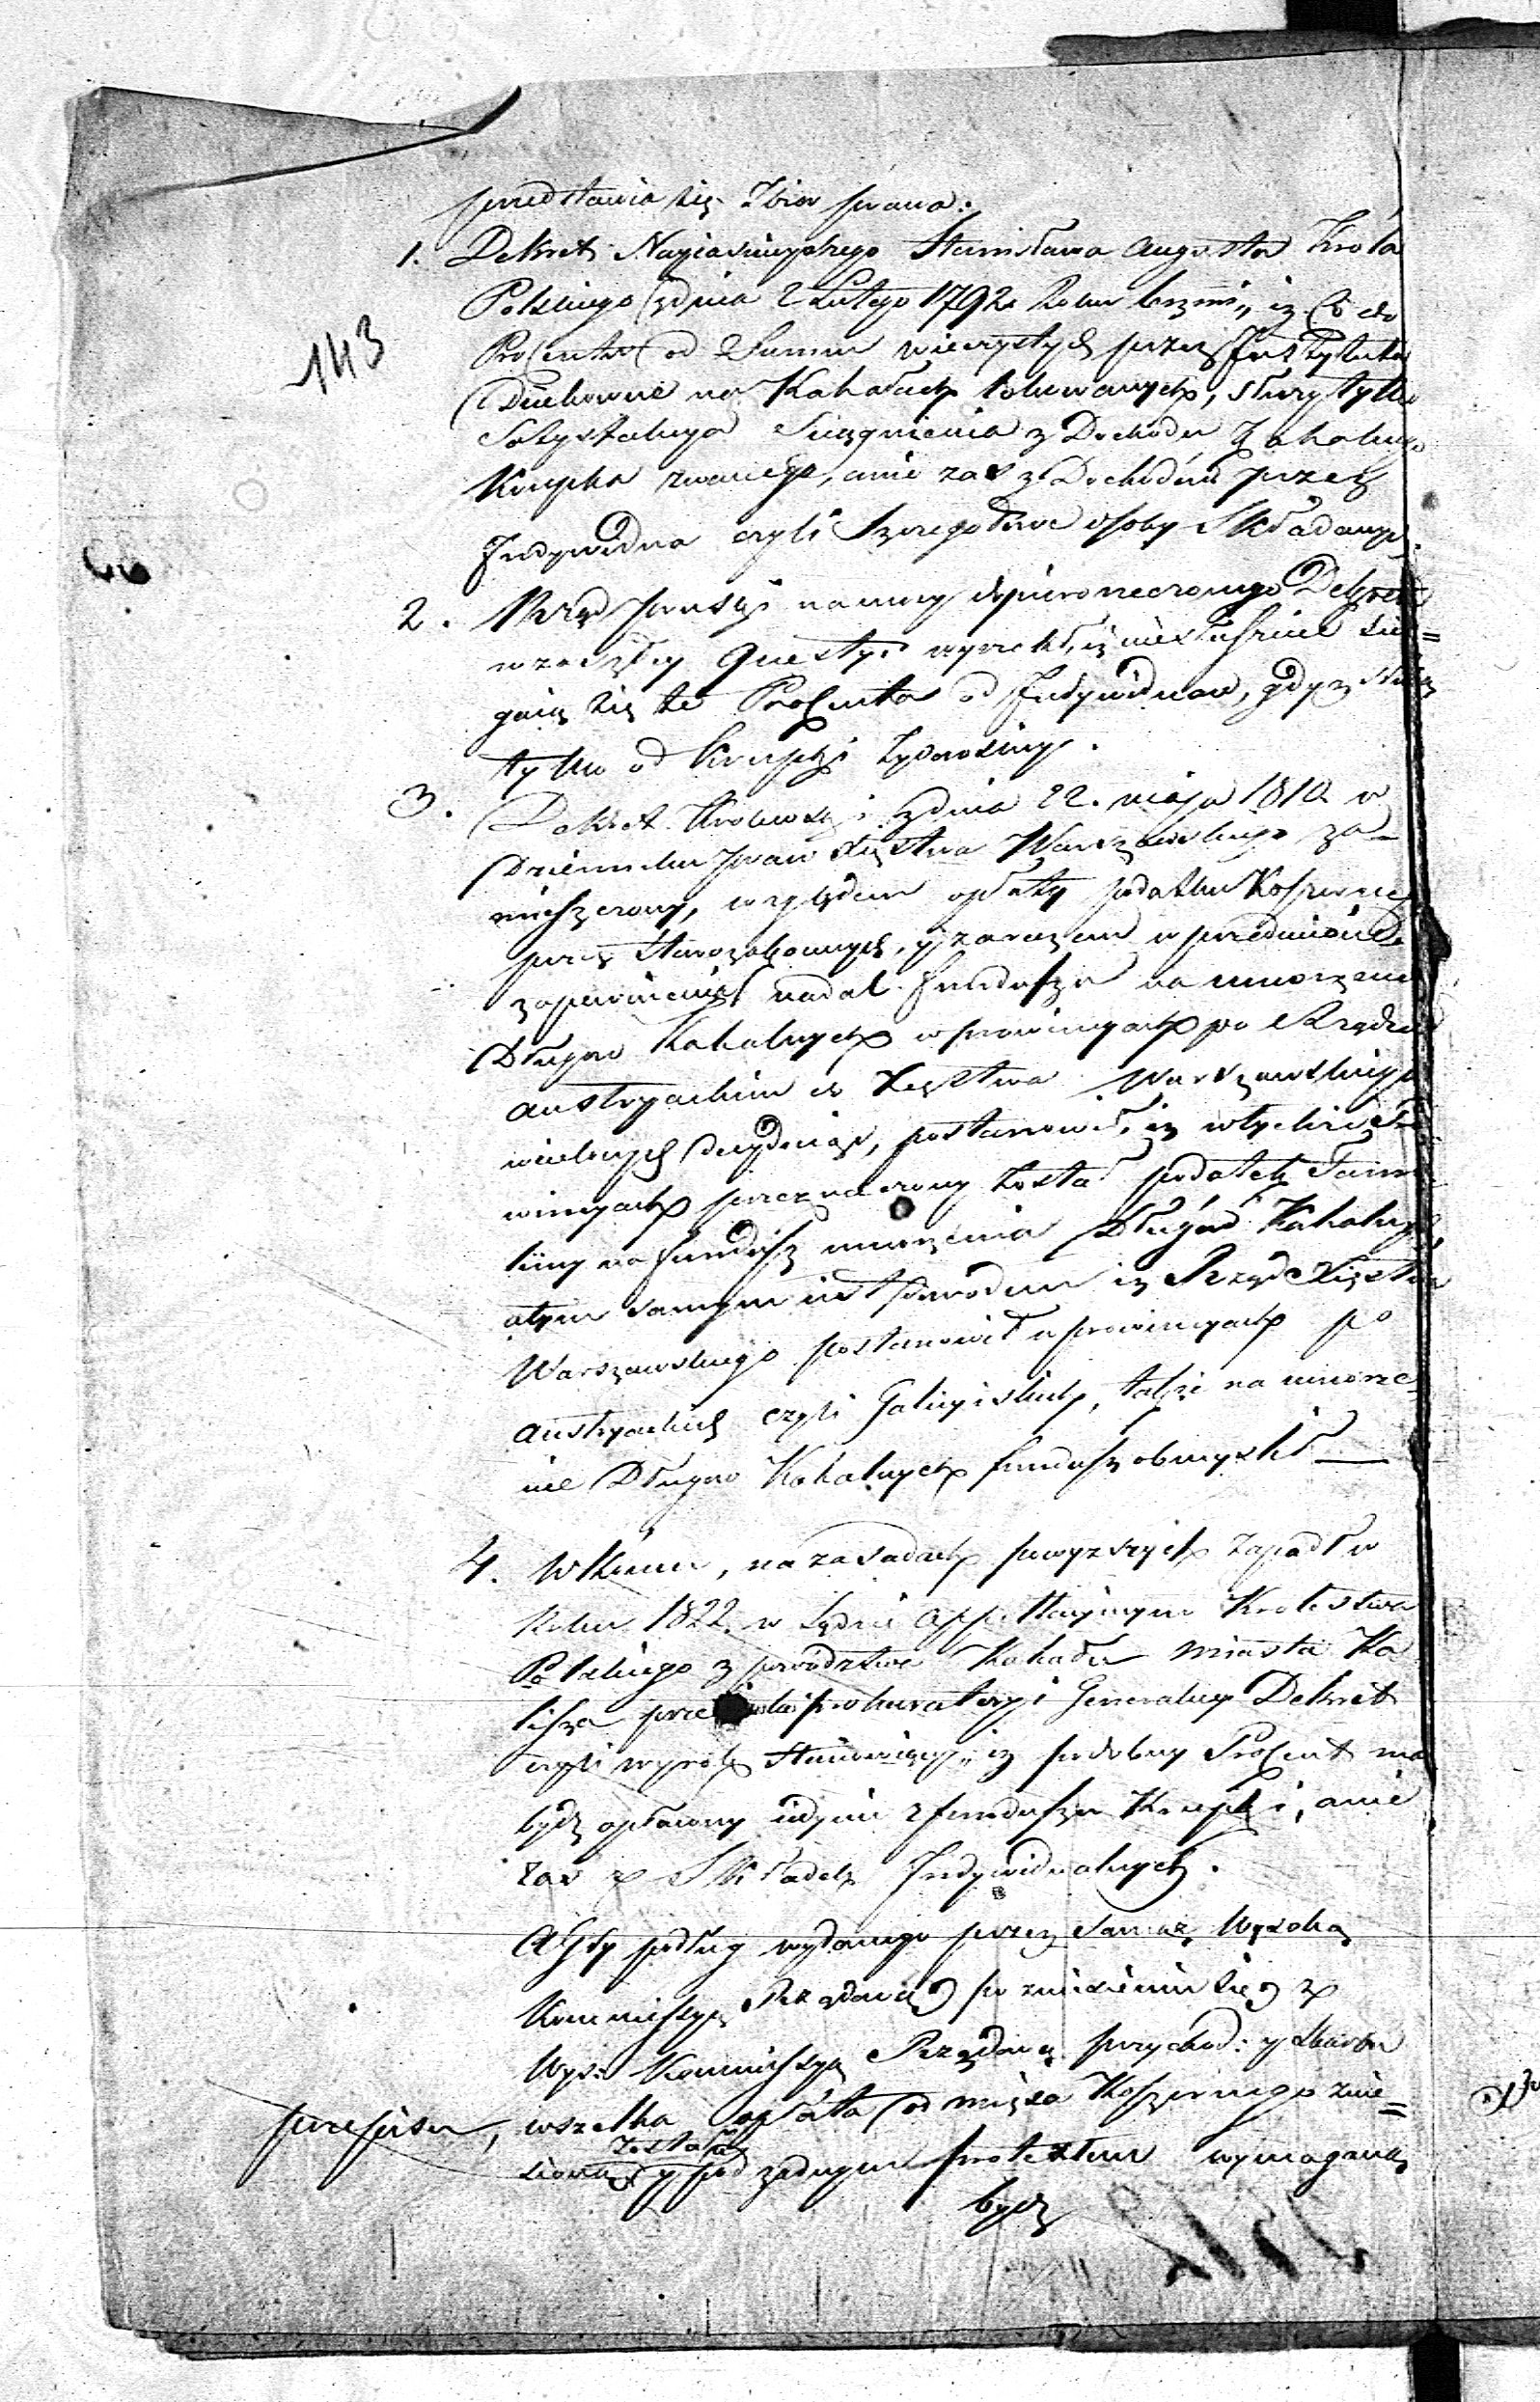 przedstawia się Zbior prawa:
1. Dekret Nayiasnieyszego Stanisława Augusta Krola
Polskiego z dnia 2 Lutego 1792 Roku brzmi „iz Co do
143
Procentow od Summ wieczystych przez Instytuta
Duchowne na Kahałach lokowanych, służy tylko
Ściągnienia z Dochodu Kahalnego
Krupka zwanego, a nie zas z Dochodów przez
Indywidua czyli Szczegołowe osoby Składanych.
2. Rząd pruski na mocy dopiero rzeczonego Dekretu
w zaszłey Questyi wyrzekł, iz niesłusznie scią=
gaią się te Procenta od Indywiduow, gdyz służą
tylko od Krupki Zydowskiey.
3. Dekret Krolewski z dnia 22. maja 1810 w
Dzienniku praw Xięstwa Warszawskiego za-
mieszczony, względem opłaty podatku Koszernego
przez Starozakonnych, y zarazem w przedmiocie
zapewnienia nadal funduszu na umorzenie
Długow Kahalnych w prowincyach po Rządzie
austryackim do Xięstwa Warszawskiego
wcielonych decydując, postanowił, iz w tychze Pro
wincyach przeznaczony został podatek Fami
liiny na fundusz umorzenia Długow Kahalnych,
a tym samym iest powodem iz Rząd Xięstwa
Warszawskiego postanowił w prowincyach po
austryackich czyli Galicyiskich, takze na umorze
nie Długow Kahalnych fundusz obmyslił
4. W Koncu, na zasadach powyzszych zapadł w
Roku 1822. w Sądzie Appellacyinym Krolestwa
Polskiego z powodztwa Kahału Miasta Ka
lisza prokuratoryi Generalney Dekret
czyli wyrok Stanowiący „iz podobny Procent ma
bydz opłacony iedynie z funduszu Krupki, a nie
zas z Składek Indywidualnych.
A Gdy podług wydanego przez Samąz Wysoką
Kommissyę Rządową po zniesieniu się z
Wys: Kommissyą Rządową przychod: y Skarbu
przepisu, wszelka opłata od mięsa Koszernego znie=
została
siona y pod zadnym pretextem wymaganą
bydz